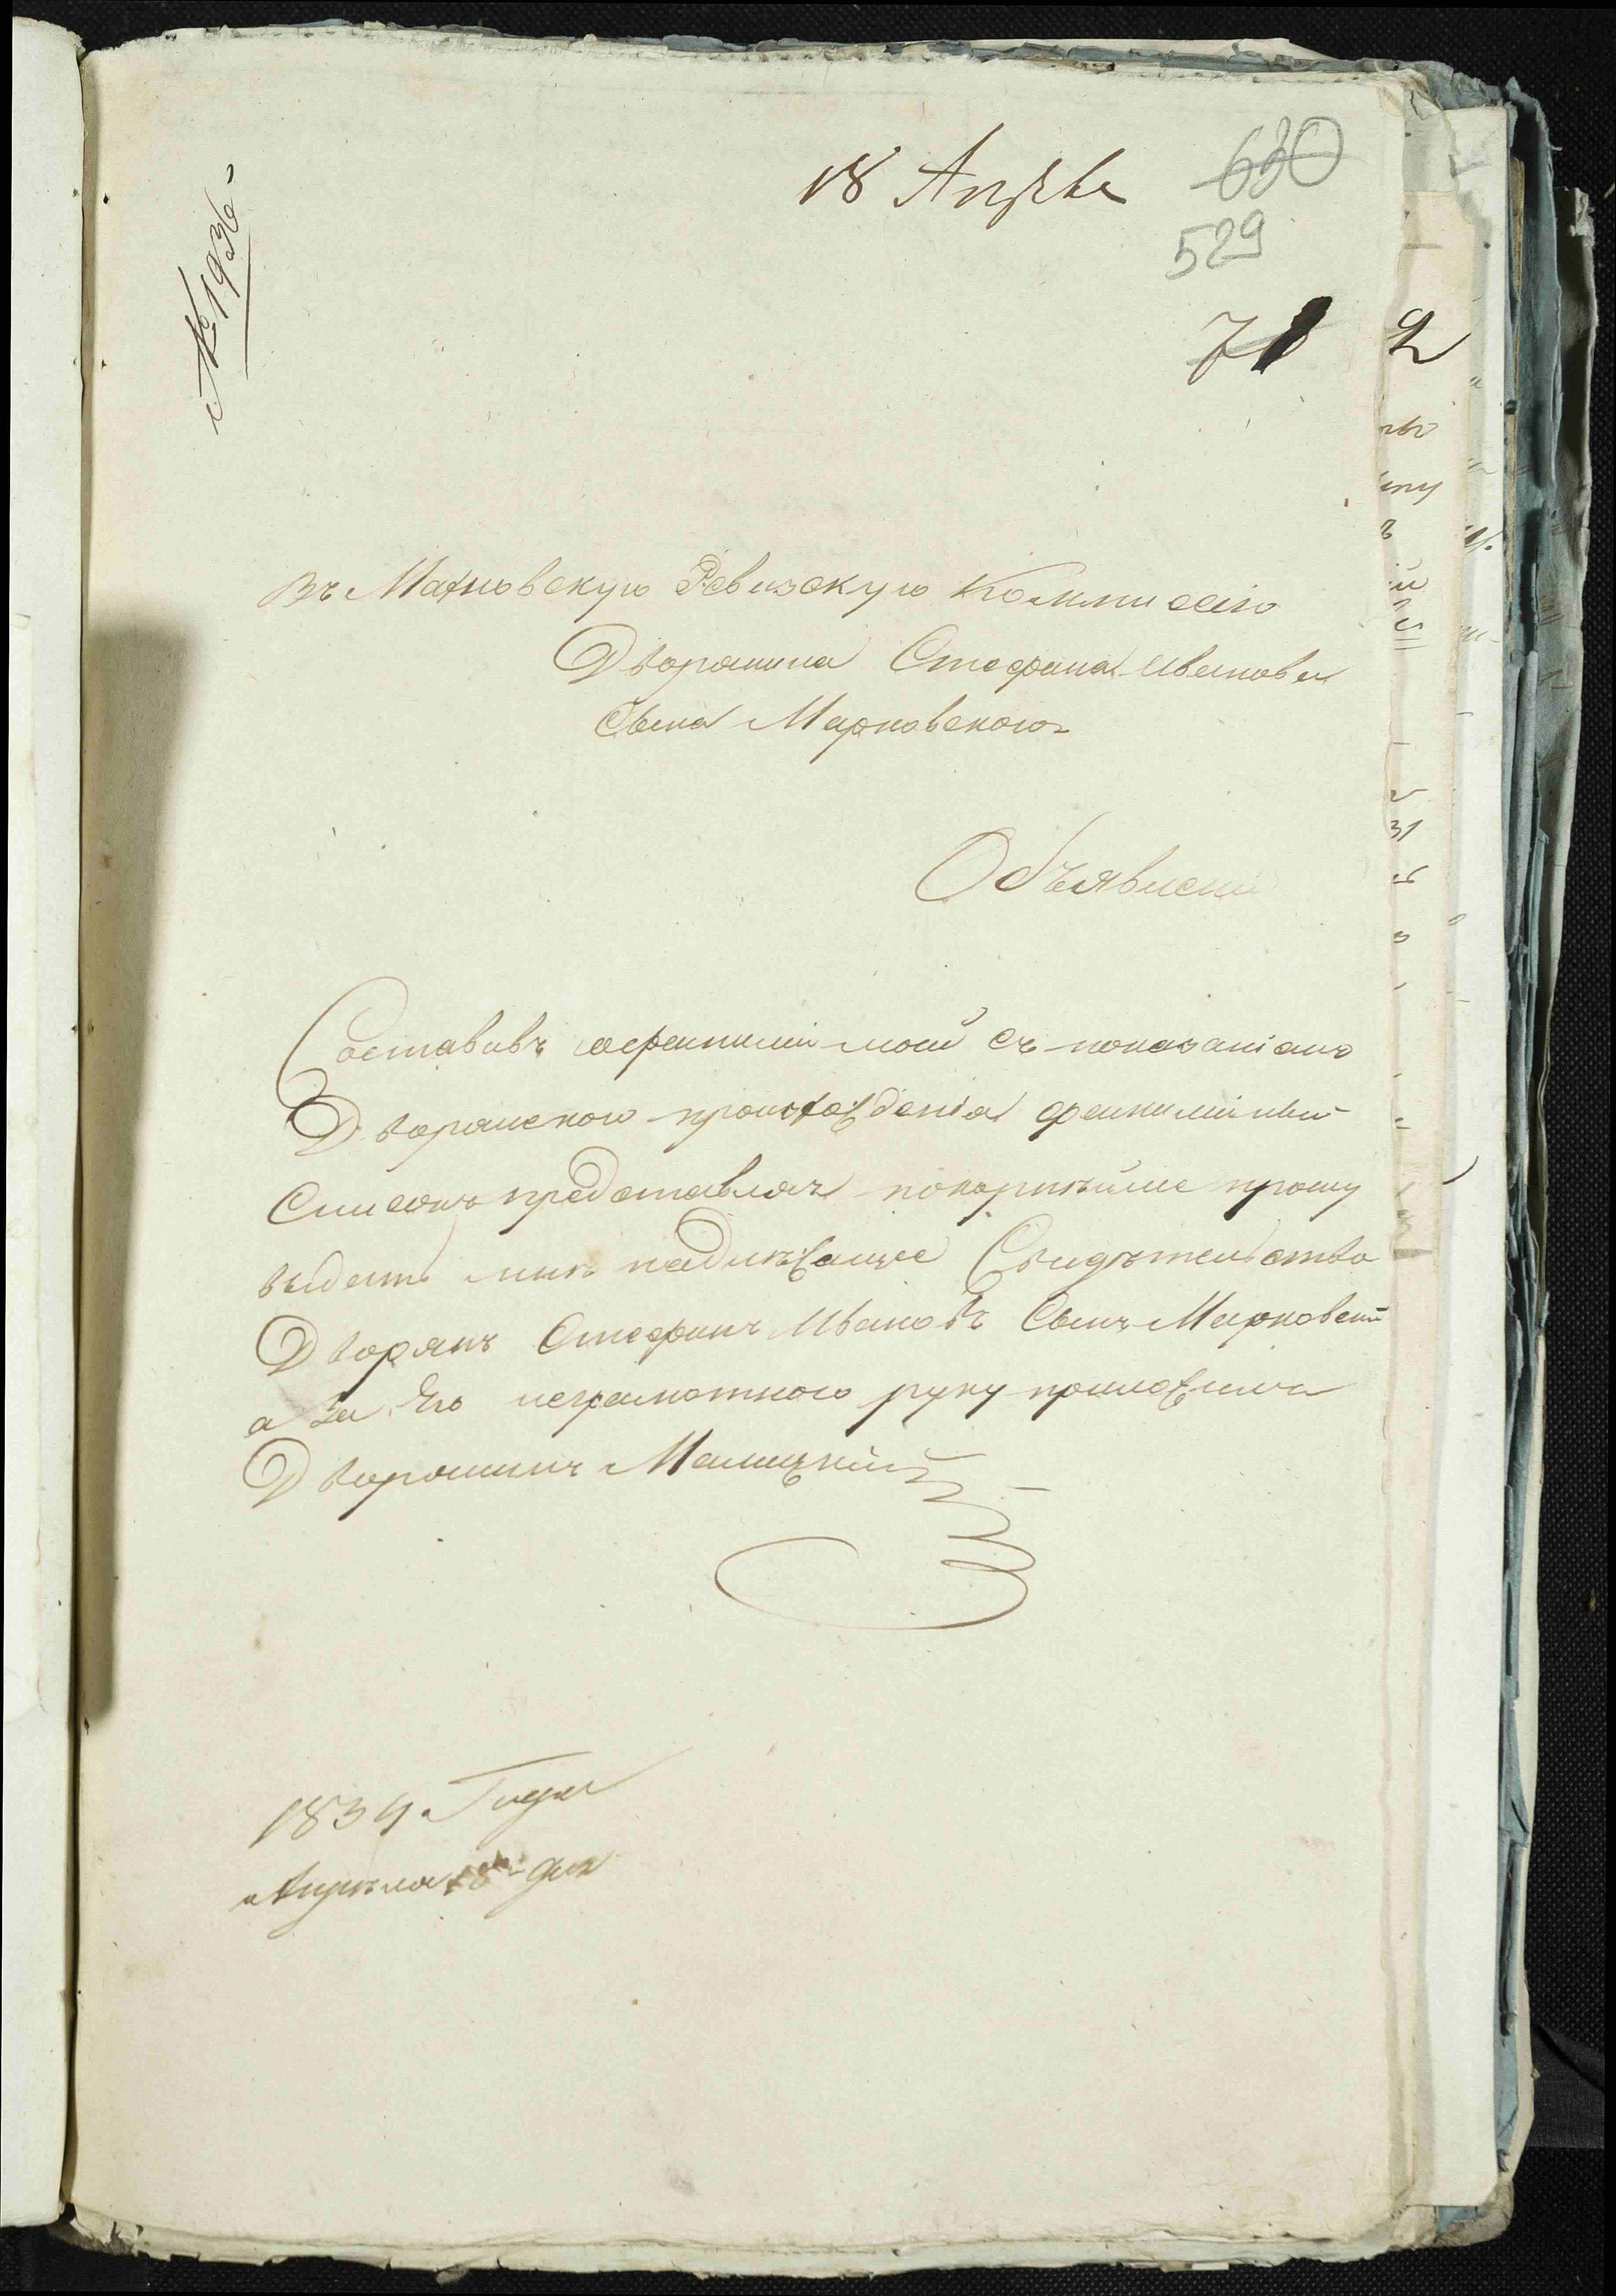 18 Апрѣл
630
529
71
№ 1936
Въ Махновскую Ревизскую Коммисію
Дворянина Стефана Иванова
Сына Марковского
Объявленіе
Составивъ о фамиліи моей съ показаніемъ
Дворянского происхожденія фамилійный
Списокъ представляя покорнѣйше прошу
выдать мнѣ надлежащее Свидѣтельство
Дворянъ Стефанъ Ивановъ Сынъ Марковскій
а за Его неграмотного руку приложилъ
Дворянинъ Малицкій
1834 Года
Апрѣля 18 дня